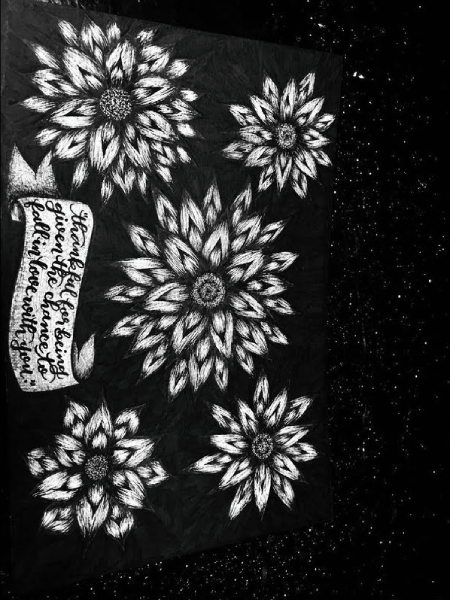 "thankful for being
given the chance to
fall in love with you."